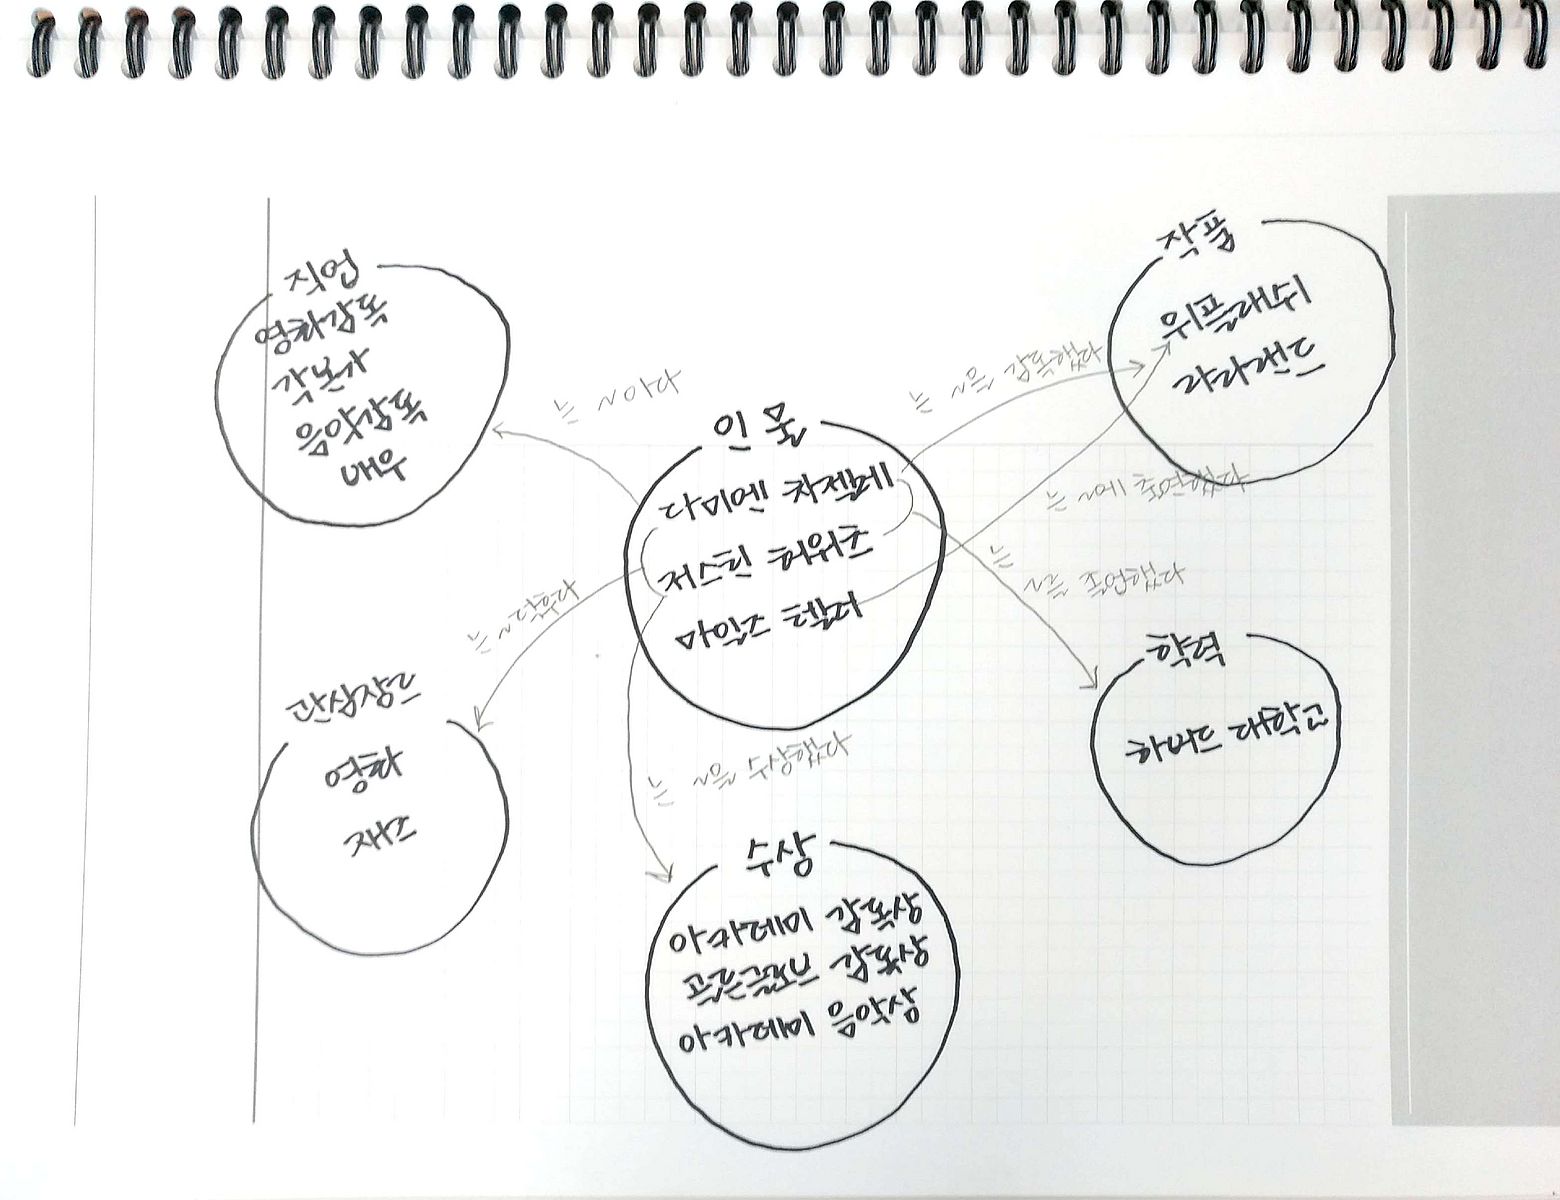 직업
영화감독
각본가
음악감독
배우
는 ~이다
인물
다미엔 차젤레
저스틴 허위츠
마일즈 텔러
는 ~을 감독했다
작품
위플래쉬
라라랜드
는 ~에 출연했다
는 ~를 졸업했다
학력
하버드 대학교
관심장르
영화
재즈
는 ~을 수상했다
수상
아카데미 감독상
골든글로브 감독상
아카데미 음악상